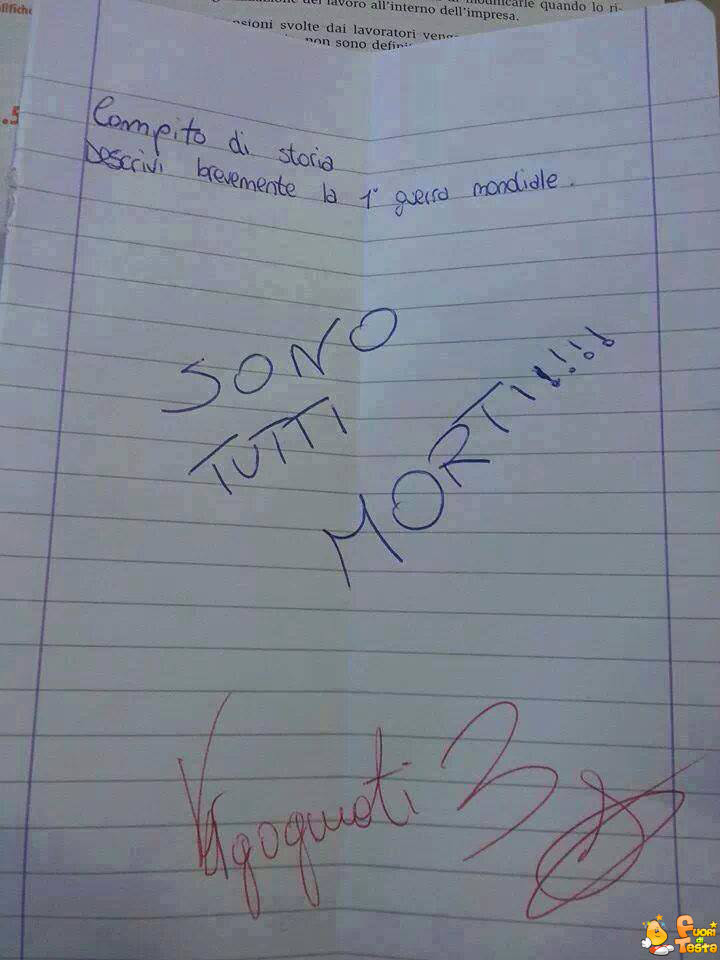 lifiche
modificarle quando lo ri-
del lavoro all'interno dell'impresa.
nsioni svolte dai lavoratori veng
non sono defini
.5
Compito di storia
Descrivi brevemente la 1° guerra mondiale.
SONO
TUTTI
MORTI!!!!
Vergognati 3
Fuori
di
Testa